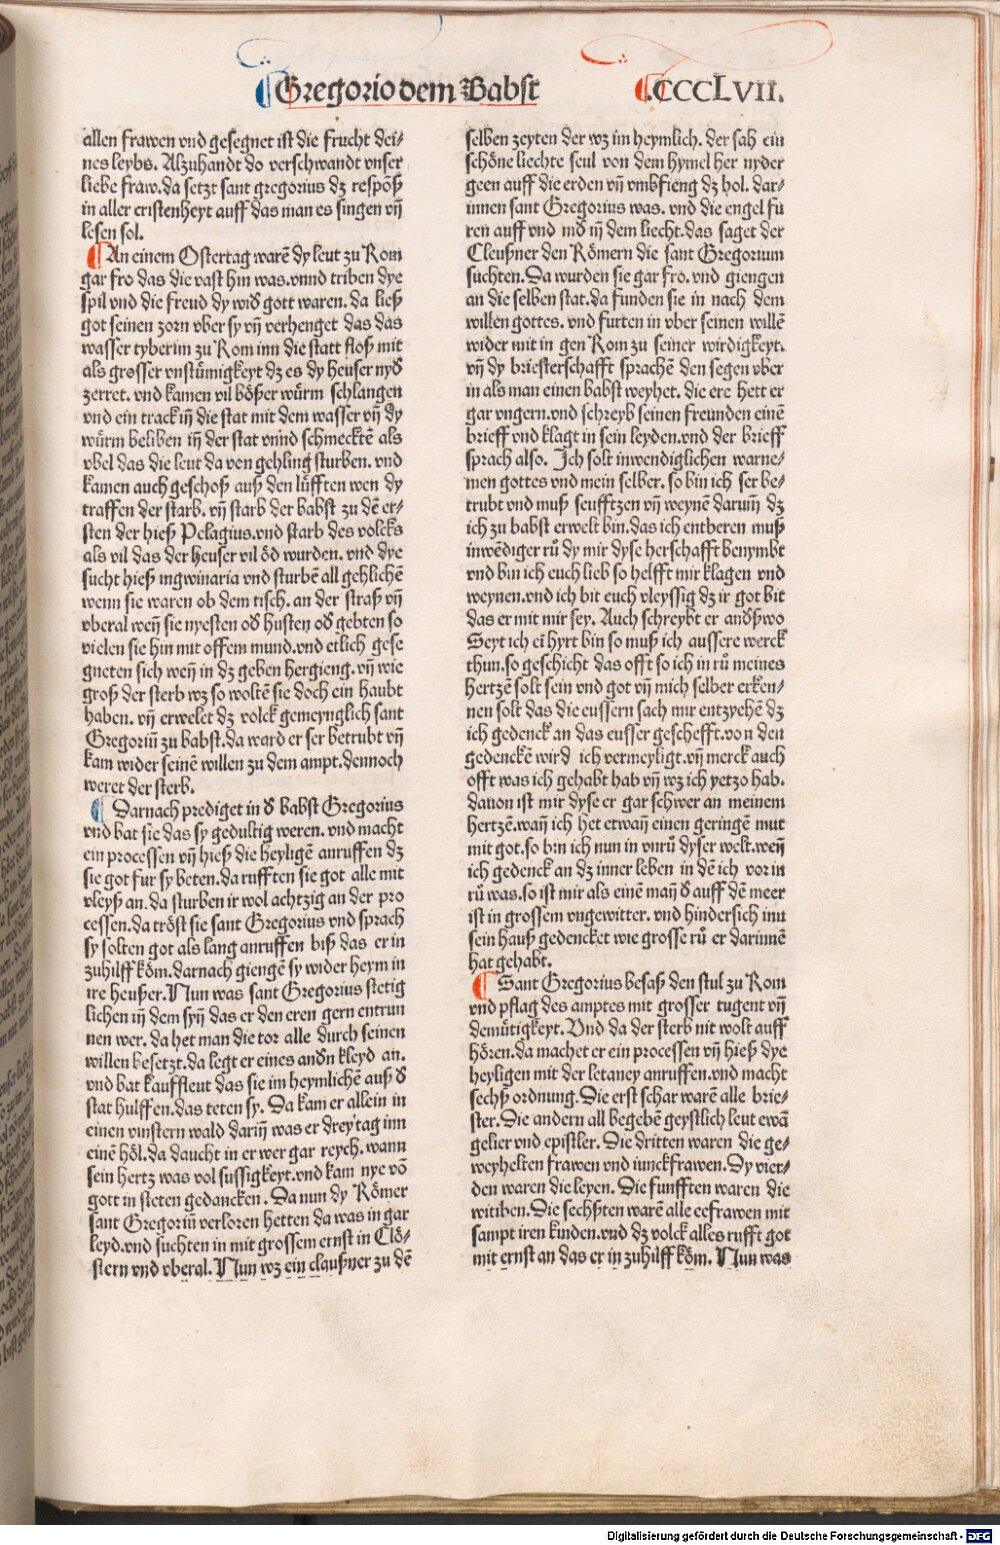 Gregorio dem Babst
.CCCLVII.
allen frawen vnd gesegnet ist die frucht dei⸗
nes leybs. Alzuhandt do verschwandt vnser
liebe fraw. da setzt sant gregorius dz respōß
in aller cristenheyt auff das man es singen vñ
lesen sol.
An einem Ostertag warē dy leut zu Rom
gar fro das die vast hin was. vnnd triben dye
spil vnd die freud dy wiď gott waren. da ließ
got seinen zorn vber sy vñ verhenget das das
wasser tyberim zu Rom inn die statt floß mit
als grosser vnstümigkeyt dz es dy heuser nyď
zerret. vnd kamen vil bößer würm schlangen
vnd ein track in̄ die stat mit dem wasser vñ dy
würm beliben in̄ der stat vnnd schmecktē als
vbel das die leut da von gehling sturben. vnd
kamen auch geschoß auß den lüfften wen dy
traffen der starb. vñ starb der babst zu dē er⸗
sten der hieß Pelagius. vnd starb des volcks
als vil das der heuser vil öd wurden. vnd dye
sucht hieß ingwinaria vnd sturbē all gehlichē
wenn sie waren ob dem tisch. an der straß vñ
vberal weñ sie nyesten oď husten oď gebten so
vielen sie hin mit offem mund. vnd etlich gese
gneten sich weñ in dz geben hergieng. vñ wie
groß der sterb wz so woltē sie doch ein haubt
haben. vñ erwelet dz volck gemeynglich sant
Gregoriū zu babst. da ward er ser betrubt vñ
kam wider seinē willen zu dem ampt. dennoch
weret der sterb.
Darnach prediget in ď babst Gregorius
vnd bat sie das sy gedultig weren. vnd macht
ein processen vñ hieß die heyligē anruffen dz
sie got fur sy beten. da rufften sie got alle mit
vleyß an. da sturben ir wol achtzig an der pro
cessen. da tröst sie sant Gregorius vnd sprach
sy solten got als lang anruffen biß das er in
zuhilff köm. darnach giengē sy wider heym in
ire heußer. Nun was sant Gregorius stetig
lichen in̄ dem syn̄ das er den eren gern entrun
nen wer. da het man die tor alle durch seinen
willen besetzt. da legt er eines anďn kleyd an.
vnd bat kauffleut das sie im heymlichē auß ď
stat hulffen. das teten sy. Da kam er allein in
einen vinstern wald darin̄ was er drey tag inn
einē höl. da daucht in er wer gar reych. wann
sein hertz was vol sussigkeyt. vnd kam nye vō
gott in steten gedancken. Da nun dy Römer
sant Gregoriū verloren hetten da was in gar
leyd. vnd suchten in mit grossem ernst in Clö⸗
stern vnd vberal. Nun wz ein claußner zu dē
selben zeyten der wz im heymlich. der sah ein
schöne liechte seul von dem hymel her nyder
geen auff die erden vñ vmbfieng dz hol. dar⸗
innen sant Gregorius was. vnd die engel fu
ren auff vnd niď in̄ dem liecht. das saget der
Cleußner den Römern die sant Gregorium
suchten. Da wurden sie gar fro. vnd giengen
an die selben stat. da funden sie in nach dem
willen gottes. vnd furten in vber seinen willē
wider mit in gen Rom zu seiner wirdigkeyt.
vñ dy briesterschafft sprachē den segen vber
in als man einen babst weyhet. die ere hett er
gar vngern. vnd schreyb seinen freunden einē
brieff vnd klagt in sein leyden. vnd der brieff
sprach also. Ich solt inwendiglichen warne⸗
men gottes vnd mein selber. so bin ich ser be⸗
trubt vnd muß seufftzen vñ weynē darum̄ dz
ich zu babst erwelt bin. das ich entberen muß
inwēdiger rů dy mir dyse herschafft benymbt
vnd bin ich euch lieb so helfft mir klagen vnd
weynen. vnd ich bit euch vleyssig dz ir got bit
das er mit mir sey. Auch schreybt er anďßwo
Seyt ich ei hyrt bin so muß ich aussere werck
thun. so geschicht das offt so ich in rů meines
hertzē solt sein vnd got vñ mich selber erken⸗
nen solt das die eussern sach mir entzyehē dz
ich gedenck an das eusser geschefft. von den
gedenckē wird ich vermeyligt. vñ merck auch
offt was ich gehabt hab vñ wz ich yetzo hab.
dauon ist mir dyse er gar schwer an meinem
hertzē. wan̄ ich het etwan̄ einen geringē mut
mit got. so bin ich nun in vnrů dyser welt. weñ
ich gedenck an dz inner leben in dē ich vor in
rů was. so ist mir als einē man̄ ď auff dē meer
ist in grossem vngewitter. vnd hindersich inn
sein hauß gedencket wie grosse rů er darinnē
hat gehabt.
Sant Gregorius besaß den stul zu Rom
vnd pflag des amptes mit grosser tugent vñ
demütigkeyt. Vnd da der sterb nit wolt auff
hören. da machet er ein processen vñ hieß dye
heyligen mit der letaney anruffen. vnd macht
sechß ordnung. Die erst schar warē alle brie⸗
ster. Die andern all begebē geystlich leut ewā
gelier vnd epistler. Die dritten waren die ge⸗
weyhelten frawen vnd iunckfrawen. Dy vier⸗
den waren die leyen. Die funfften waren die
witiben. Die sechßten warē alle eefrawen mit
sampt iren kinden. vnd dz volck alles rufft got
mit ernst an das er in zuhilff köm. Nun was
Digitalisierung gefördert durch die Deutsche Forschungsgemeinschaft - DFG